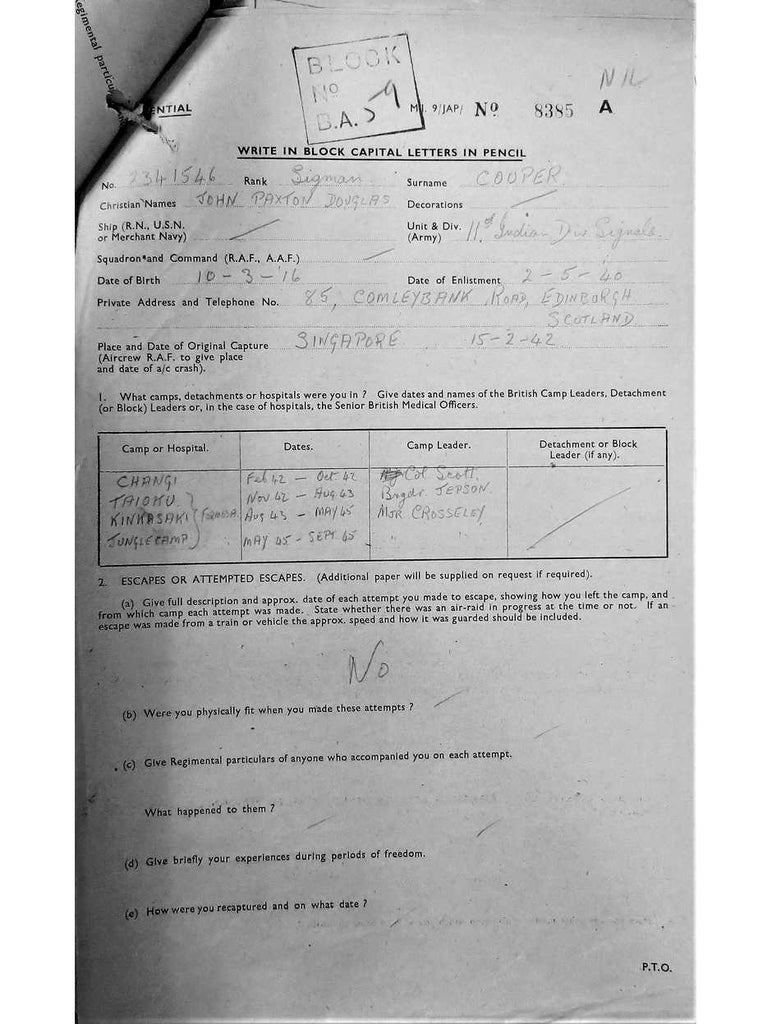 egimental particu
ENTIAL
BLOCK
No
B.A.
NIL
M.I. 9/JAP/ No 8385 A
WRITE IN BLOCK CAPITAL LETTERS IN PENCIL
No. 2341546 Rank Sigman Surname COUPER
Christian Names JOHN PAXTON DOUGLAS Decorations
Ship (R.N., U.S.N. Unit & Div. 11th Indian Div Signals
or Merchant Navy) (Army)
Squadron and Command (R.A.F., A.A.F.)
Date of Birth 10-3-'16 Date of Enlistment 2-5-40
Private Address and Telephone No. 85, COMLEYBANK ROAD, EDINBURGH
SCOTLAND
Place and Date of Original Capture SINGAPORE 15-2-42
(Aircrew R.A.F. to give place
and date of a/c crash).
1. What camps, detachments or hospitals were you in ? Give dates and names of the British Camp Leaders, Detachment
(or Block) Leaders or, in the case of hospitals, the Senior British Medical Officers.
Camp or Hospital. Dates. Camp Leader. Detachment or Block
Leader (if any).
CHANGI Feb 42 — Oct 42 Col Scott.
TAIOKU Nov 42 — Aug 43 Bngdr JEPSON.
KINKASAKI FORMOSA Aug 43 — MAY 45 MJR CROSSELEY
JUNGLE CAMP MAY 45 - SEPT 45 " "
2. ESCAPES OR ATTEMPTED ESCAPES. (Additional paper will be supplied on request if required).
(a) Give full description and approx. date of each attempt you made to escape, showing how you left the camp, and
from which camp each attempt was made. State whether there was an air-raid in progress at the time or not. If an
escape was made from a train or vehicle the approx. speed and how it was guarded should be included.
No
(b) Were you physically fit when you made these attempts ?
(c) Give Regimental particulars of anyone who accompanied you on each attempt.
What happened to them ?
(d) Give briefly your experiences during periods of freedom.
(e) How were you recaptured and on what date ?
P.T.O.